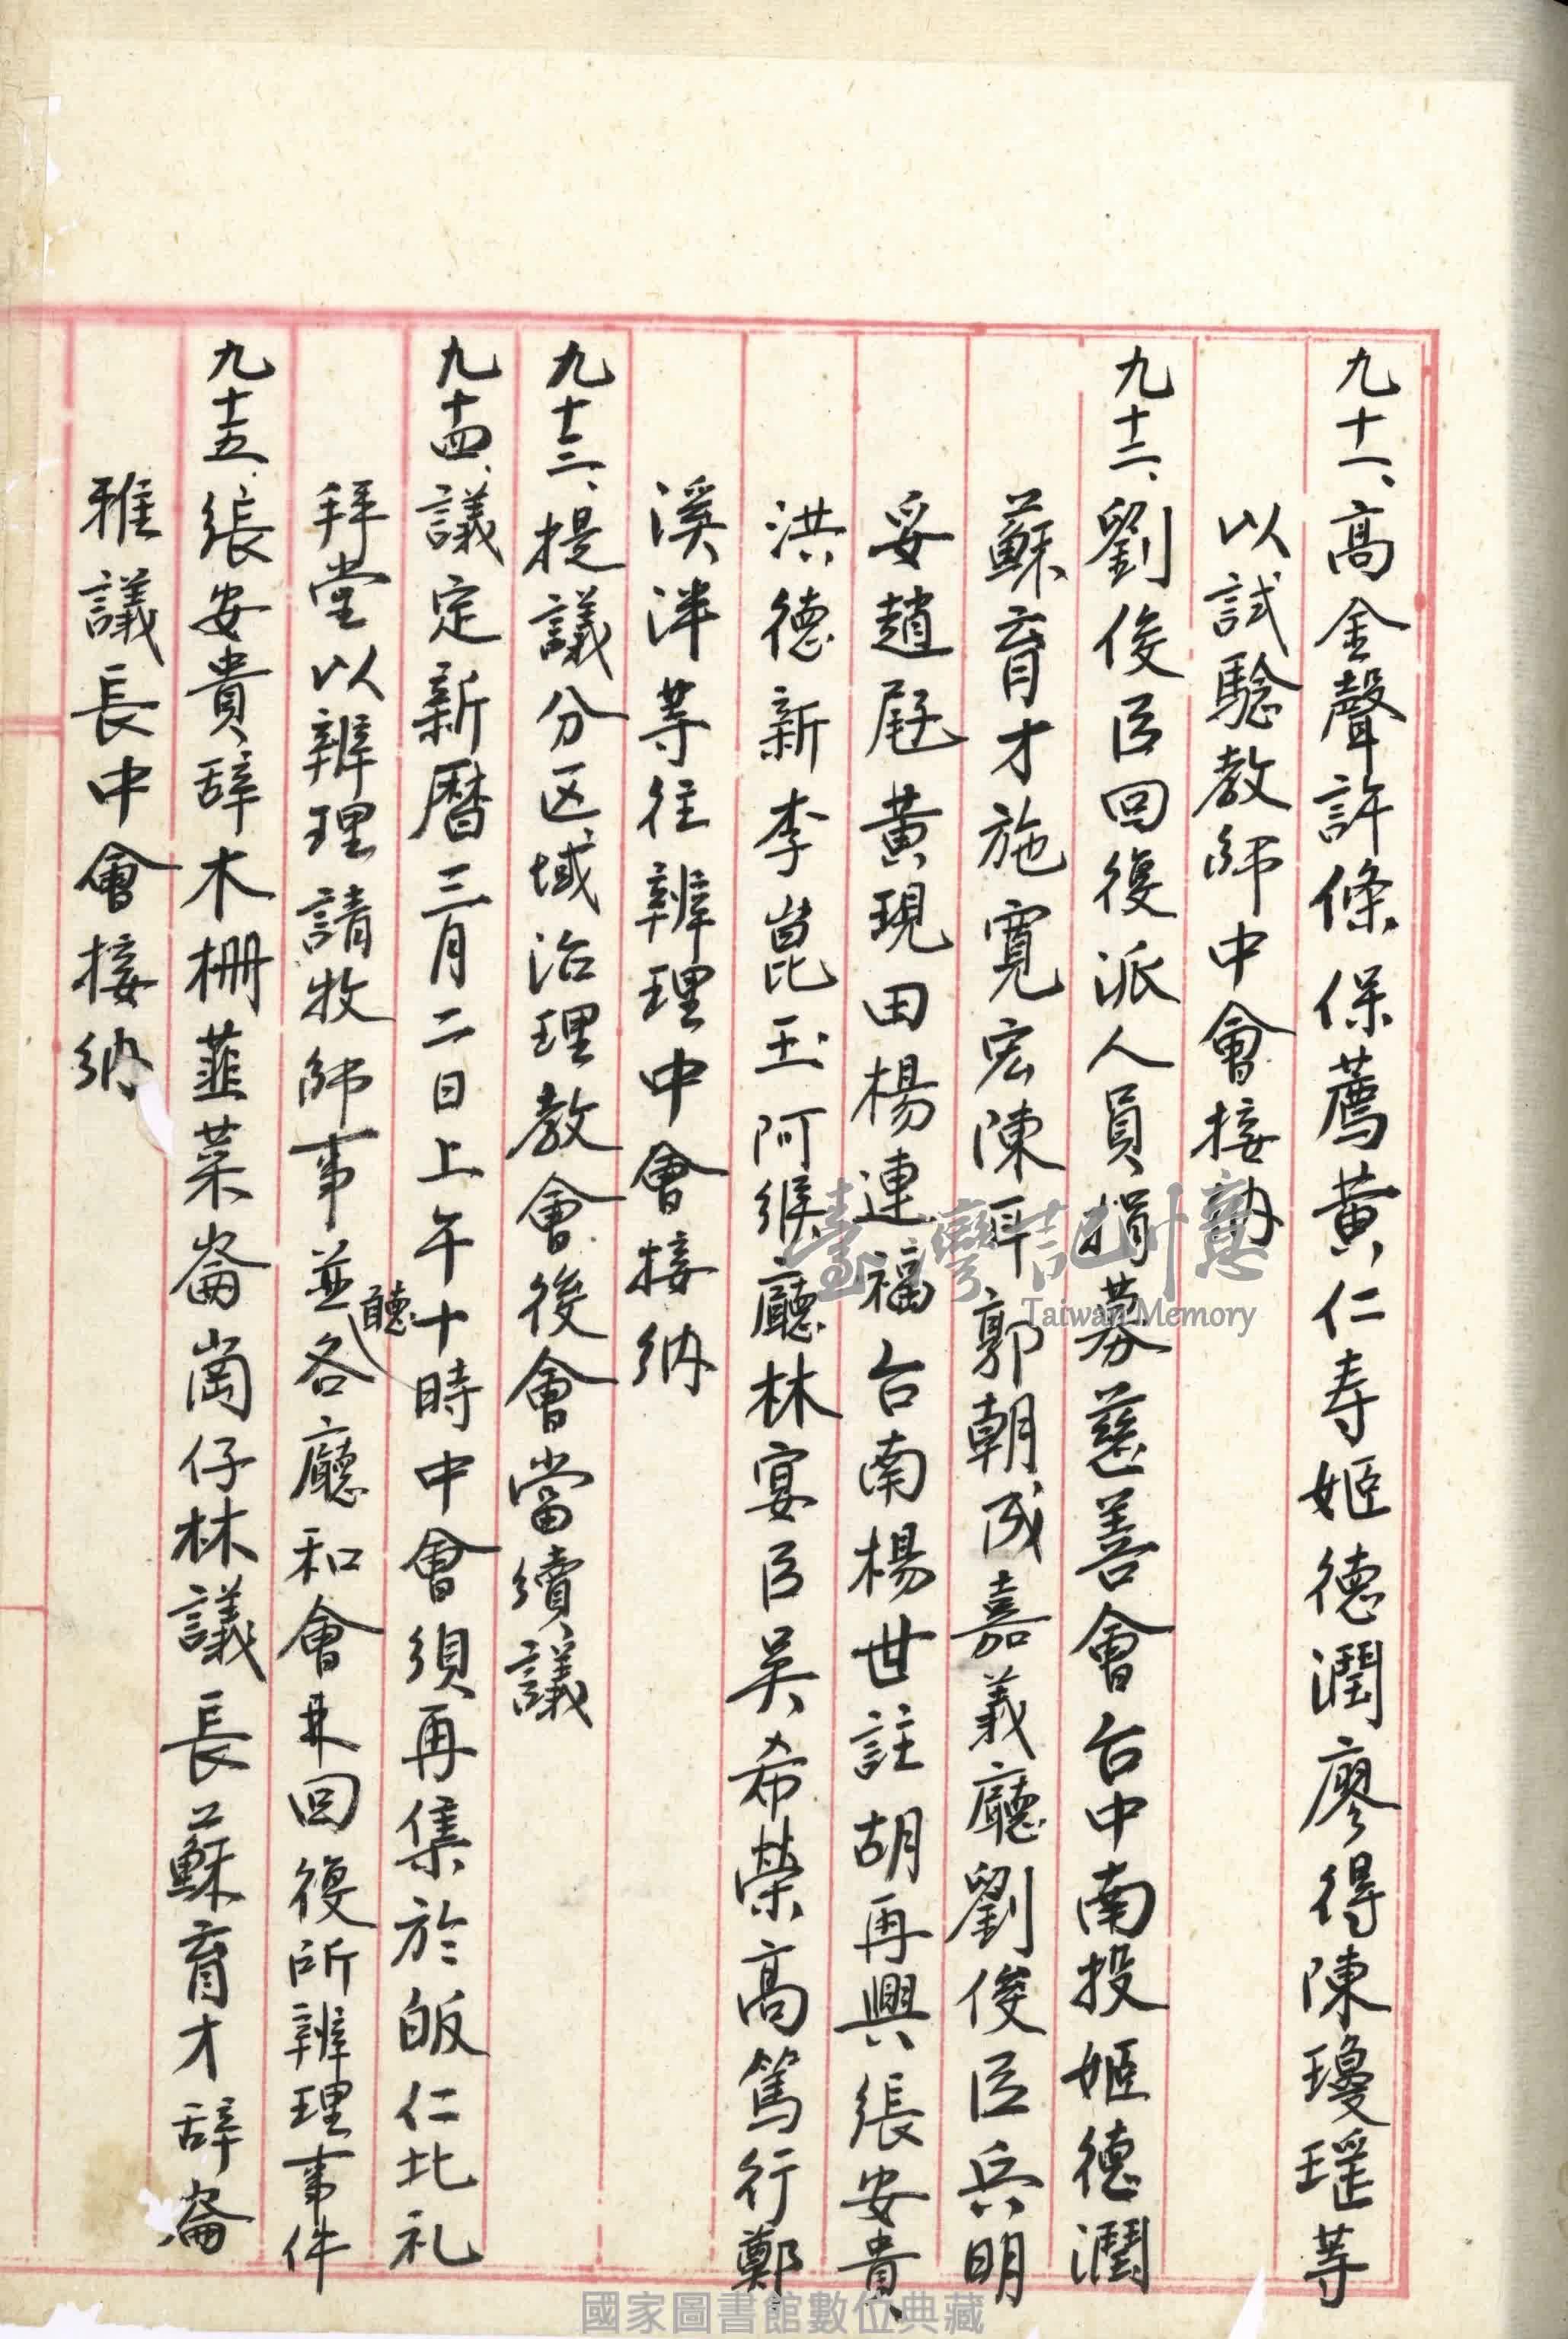 九十一、高金聲許條保薦黃仁寿姬德潤廖得陳瓊瑤等
以試驗教師中會接納
九十二、劉俊臣回復派人員捐募慈善會台中南投姬德潤
蘇育才施寬宏陳耳郭朝成嘉義廳劉俊臣兵明
妥趙廷黃現田楊連福台南楊世註胡再興張安貴
洪德新李崑玉阿緱廳林宴臣吴希榮高篤行鄭
溪泮等往辦理中會接納
九十三、提議分区域治理教會後會當續議
九十四、議定新曆三月二日上午十時中會須再集於皈仁北礼
拜堂以辦理請牧師事並聽各廳和會來回復所辦理事件
九十五、張安貴辞木柵韮菜崙崗仔林議長蘇育才辞崙
雅議長中會接納
臺灣記憶
Taiwan Memory
國家圖書館數位典藏